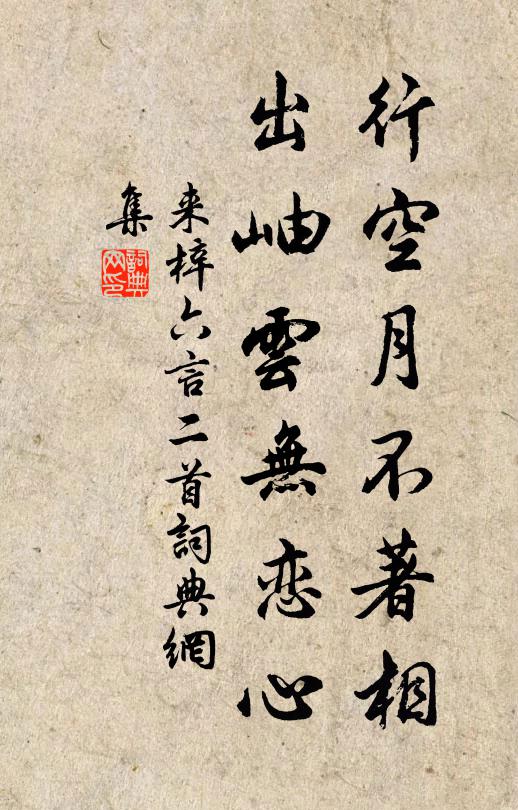 行空月不著相
出岫雲無恋心
来梓六言二首詞典網
集
詞典
网印